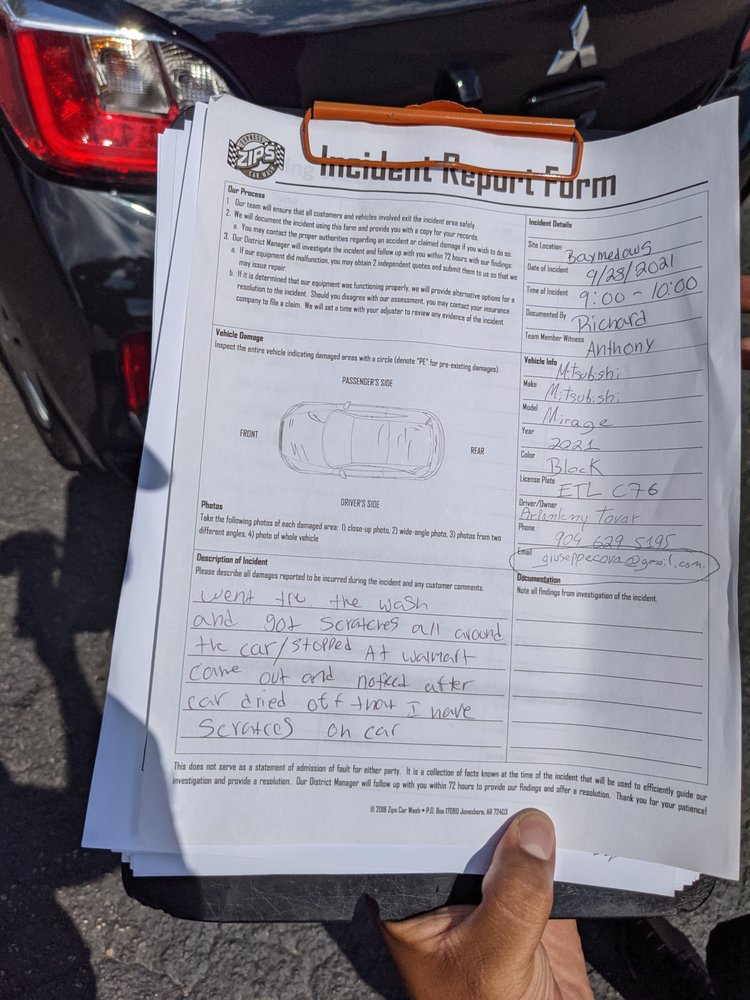 EXPRESS
ZIPS
CAR WASH
Incident Report Form
Our Process
1. Our team will ensure that all customers and vehicles involved exit the incident area safely.
2. We will document the incident using this form and provide you with a copy for your records.
a. You may contact the proper authorities regarding an accident or claimed damage if you wish to do so.
3. Our District Manager will investigate the incident and follow up with you within 72 hours with our findings:
a. If our equipment did malfunction, you may obtain 2 independent quotes and submit them to us so that we
may issue repair.
b. If it is determined that our equipment was functioning properly, we will provide alternative options for a
resolution to the incident. Should you disagree with our assessment, you may contact your insurance
company to file a claim. We will set a time with your adjuster to review any evidence of the incident.
Incident Details
Site Location Baymedows
Date of Incident 9/28/2021
Time of Incident 9:00 - 10:00
Documented By Richard
Team Member Witness Anthony
Vehicle Damage
Inspect the entire vehicle indicating damaged areas with a circle (denote "PE" for pre-existing damages).
PASSENGER'S SIDE
FRONT
REAR
DRIVER'S SIDE
Vehicle Info Mitsubishi
Make Mitsubishi
Model Mirage
Year 2021
Color Black
License Plate ETL C76
Driver/Owner Tovar
Phone 904 629 5195
Email giuseppecova@gmail.com
Photos
Take the following photos of each damaged area: 1) close-up photo, 2) wide-angle photo, 3) photos from two
different angles, 4) photo of whole vehicle
Description of Incident
Please describe all damages reported to be incurred during the incident and any customer comments.
went the wash
and got scratches all around
the car/stopped At walmart
came out and after
car dried off that I have
on car
Documentation
Note all findings from investigation of the incident.
This does not serve as a statement of admission of fault for either party. It is a collection of facts known at the time of the incident that will be used to efficiently guide our
investigation and provide a resolution. Our District Manager will follow up with you within 72 hours to provide our findings and offer a resolution. Thank you for your patience!
© 2018 Zips Car Wash • P.O. Box 17080 Jonesboro, AR 72403